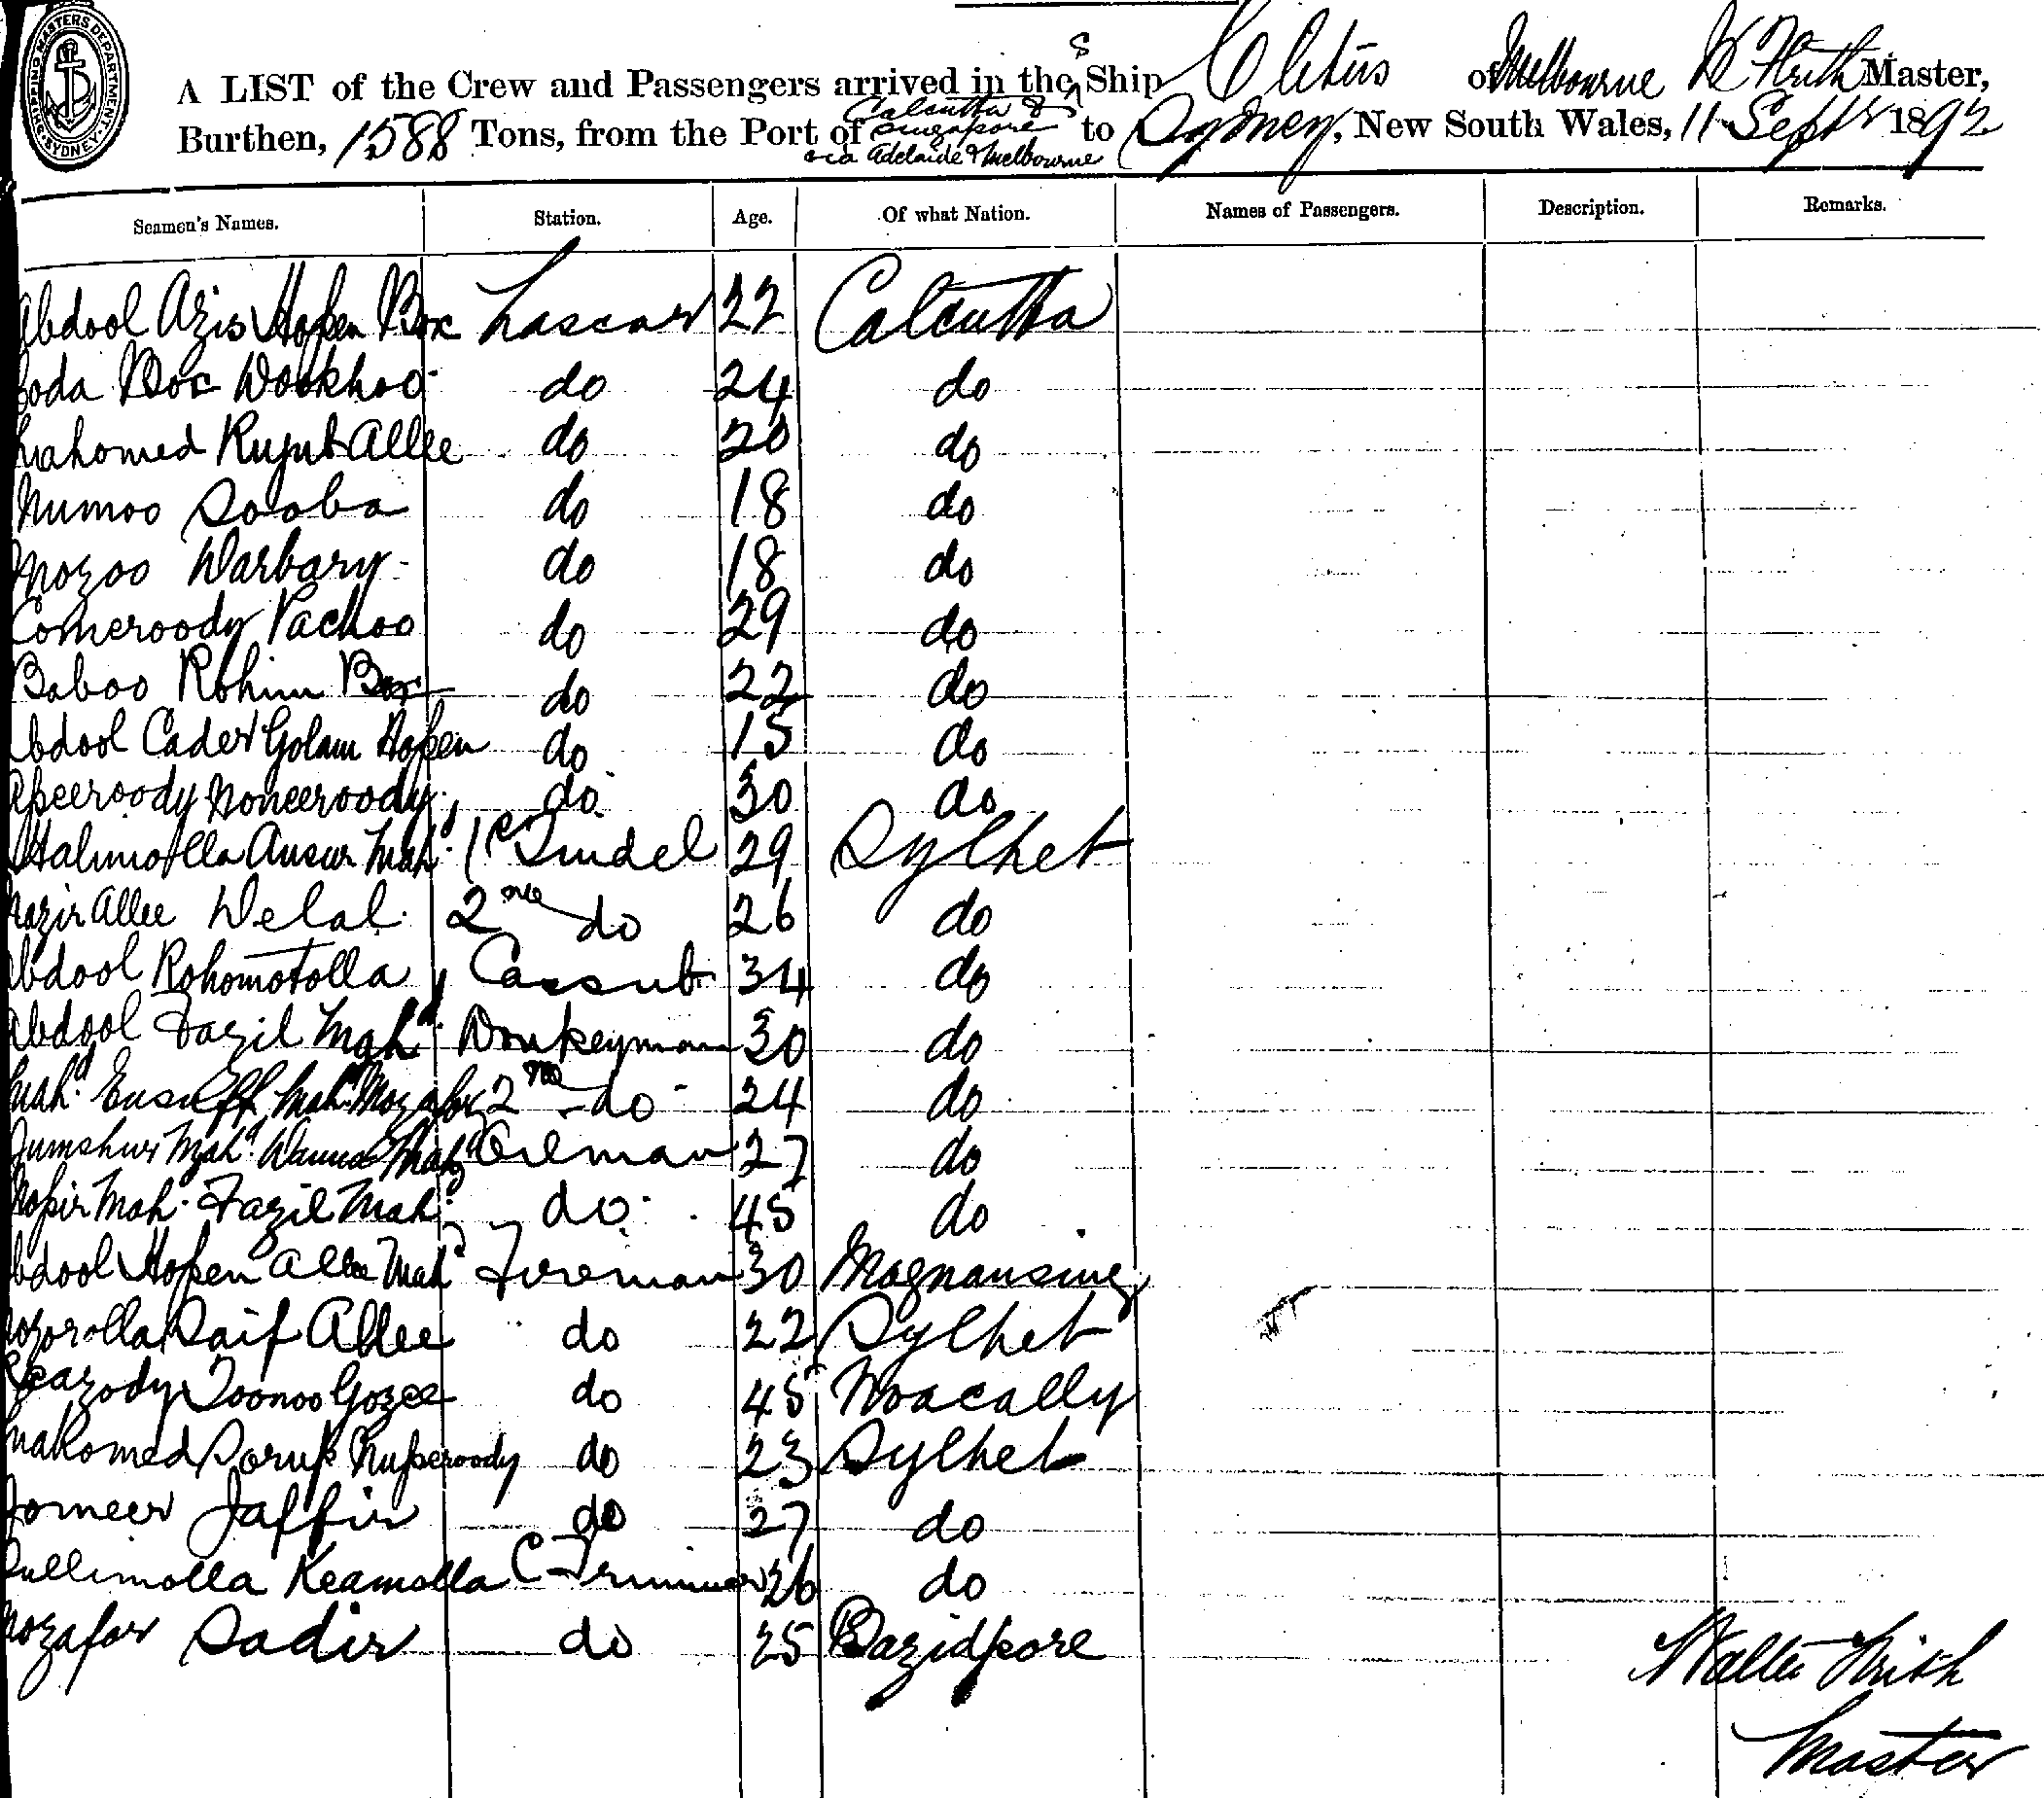 SHIPPING MASTERS DEPARTMENT. SYDNEY.
A LIST of the Crew and Passengers arrived in the S Ship Clitus of Melbourne W Frith Master,
Burthen, 1588 Tons, from the Port of Calcutta & Singapore via Adelaide & Melbourne to Sydney, New South Wales, 11 Septr 1892
Seamen's Names. Station. Age. Of what Nation. Names of Passengers. Description. Remarks.
Abdool Azis Hossen Box Lascar 22 Calcutta
Boda Wookhoo do 24 do
Mahomed Rujub Allee do 20 do
Numoo Sooba do 18 do
Mozoo Darbary do 18 do
Comeroody Pachoo do 29 do
Baboo Rohim Box do 22 do
Abdool Cader Golam Hossen do 15 do
Asseeroody Moneeroody do 30 do
Halimotlla Ansur Mahd 1st Tindel 29 Sylhet
Nazir Allee Delal 2nd do 26 do
Abdool Rohomotolla Cassub 34 do
Abdool Fazil Mahd Donkeyman 30 do
Mahd Eusuff Mahd Mozafor 2nd do 24 do
Jumshur Mahd Wanna Mahd Oilman 27 do
Nossir Mah. Fazil Mahd do 45 do
Abdool Hossen Allee Mahd Fireman 30 Magnansing
Mozorolla Saif Allee do 22 Sylhet
Reazody Toonoo Gozee do 45 Noacally
Mahomed Sorup Nusseroody do 23 Sylhet
Jomeer Jaffir do 27 do
Sullimolla Keamolla C Trimmer 26 do
Mozafar Sadir do 25 Bazidpore
Walter Frith
Master